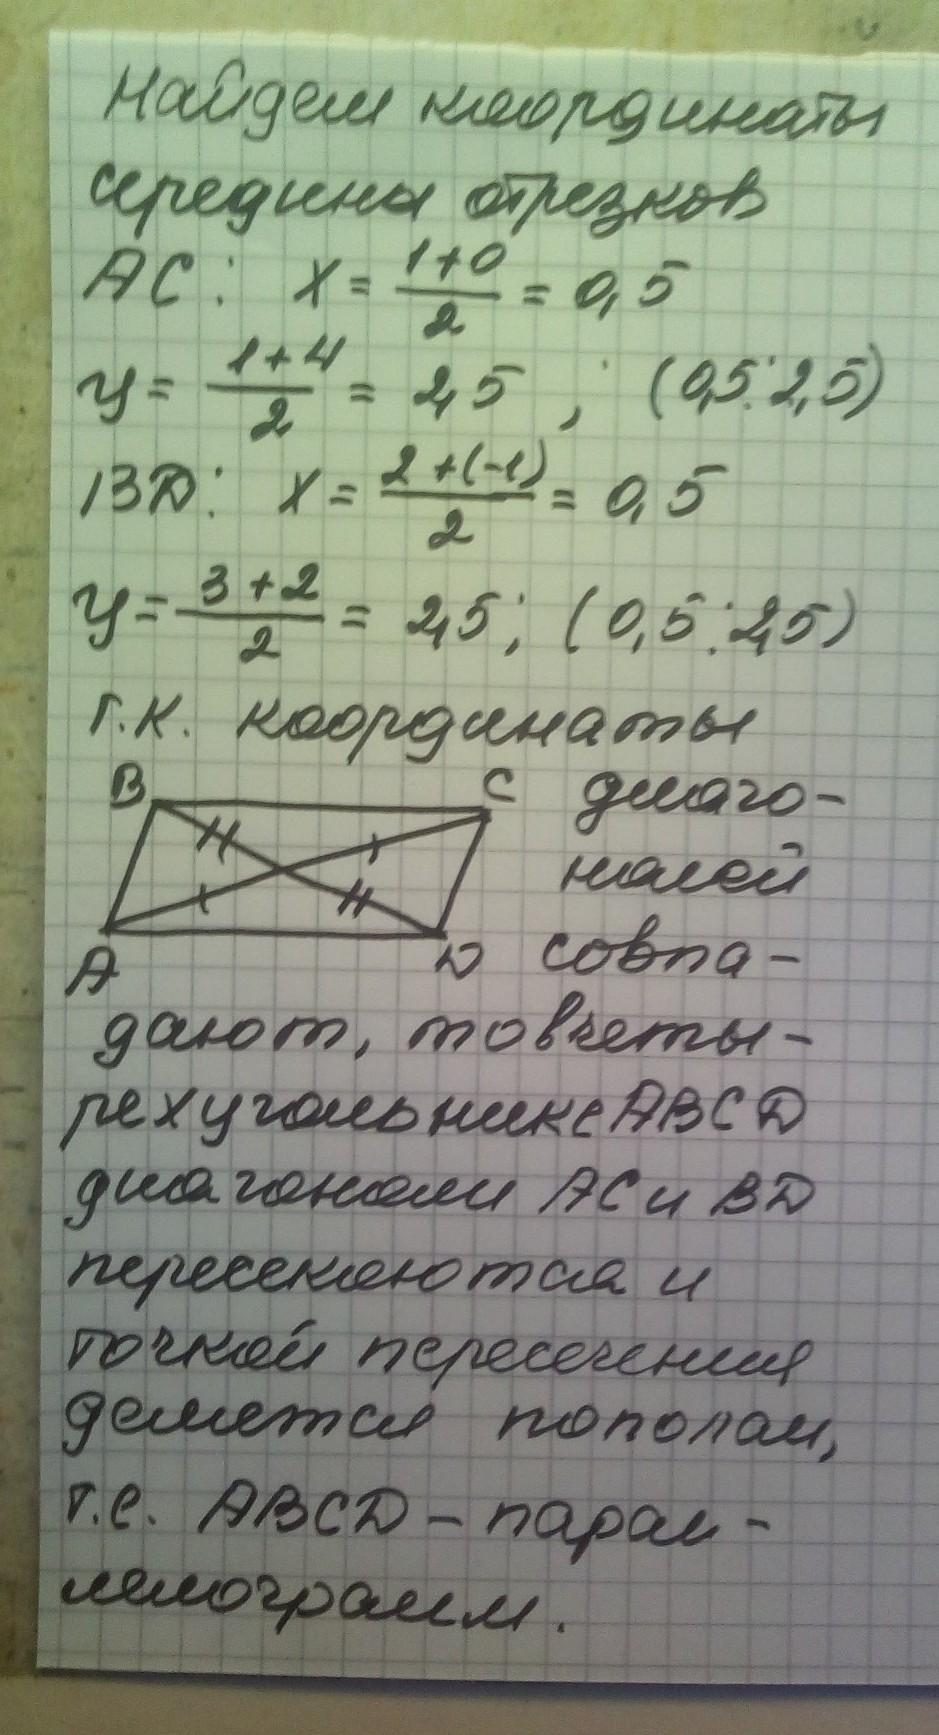 Найдем координаты
середины отрезков
AC: x = \frac{1+0}{2} = 0,5
y = \frac{1+4}{2} = 2,5 ; (0,5; 2,5)
BD: x = \frac{2+(-1)}{2} = 0,5
y = \frac{3+2}{2} = 2,5; (0,5; 2,5)
т.к. координаты
B C диаго-
налей
A D совпа-
дают, то в четы-
рехугольнике ABCD
диагонали AC и BD
пересекаются и
точкой пересечения
делятся пополам,
т.е. ABCD - парал-
лелограмм.